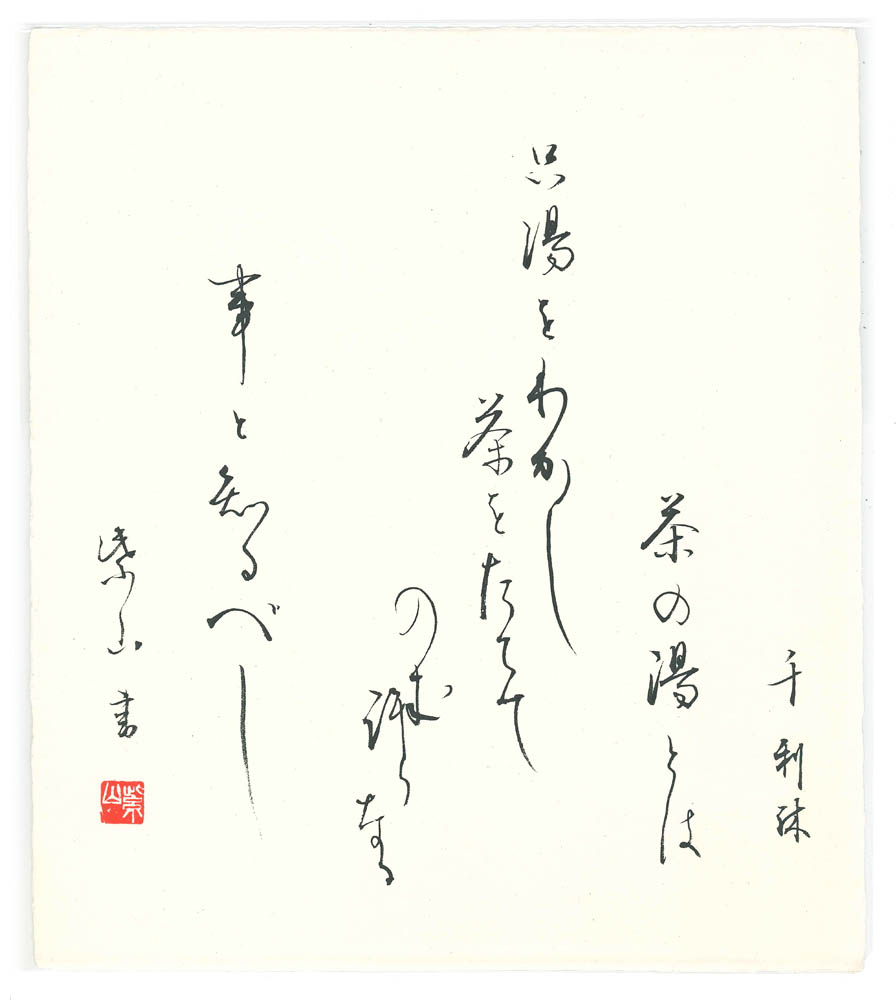 千利休
茶の湯とは
只湯をわかし
茶をたてて
のむ
許り
なる
事と知るべし
紫山書
紫山